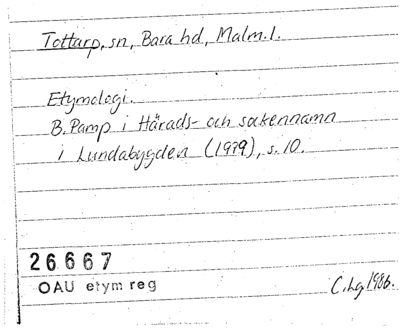 Tottarp, sn, Bara hd, Malm. l.
Etymologi.
B. Pamp i Härads- och sockennamn
i Lundabygden (1979), s. 10.
26667
OAU etym reg
C. Lg 1986.